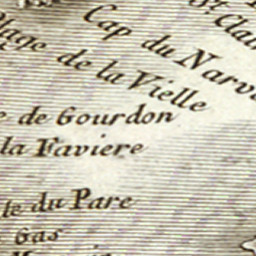 St. Clair
Cap du Narv
Plage de la Vielle
e de Gourdon
la Faviere
le du Pare
Gas